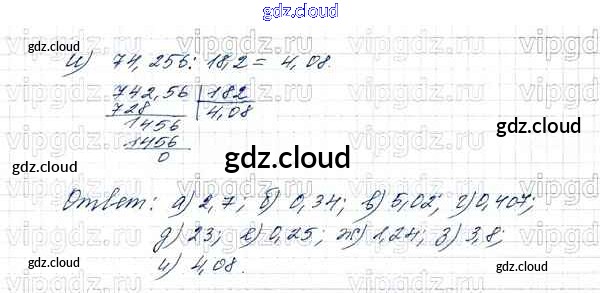 gdz.cloud
gdz.cloud
gdz.cloud
и) 74,256 : 18,2 = 4,08.
742,56 | 182
728 | 4,08
1456
1456
0
gdz.cloud
gdz.cloud
gdz.cloud
Ответ: а) 2,7; б) 0,34; в) 5,02; г) 0,407;
д) 23; е) 0,25; ж) 1,24; з) 3,8;
и) 4,08.
gdz.cloud
gdz.cloud
gdz.cloud